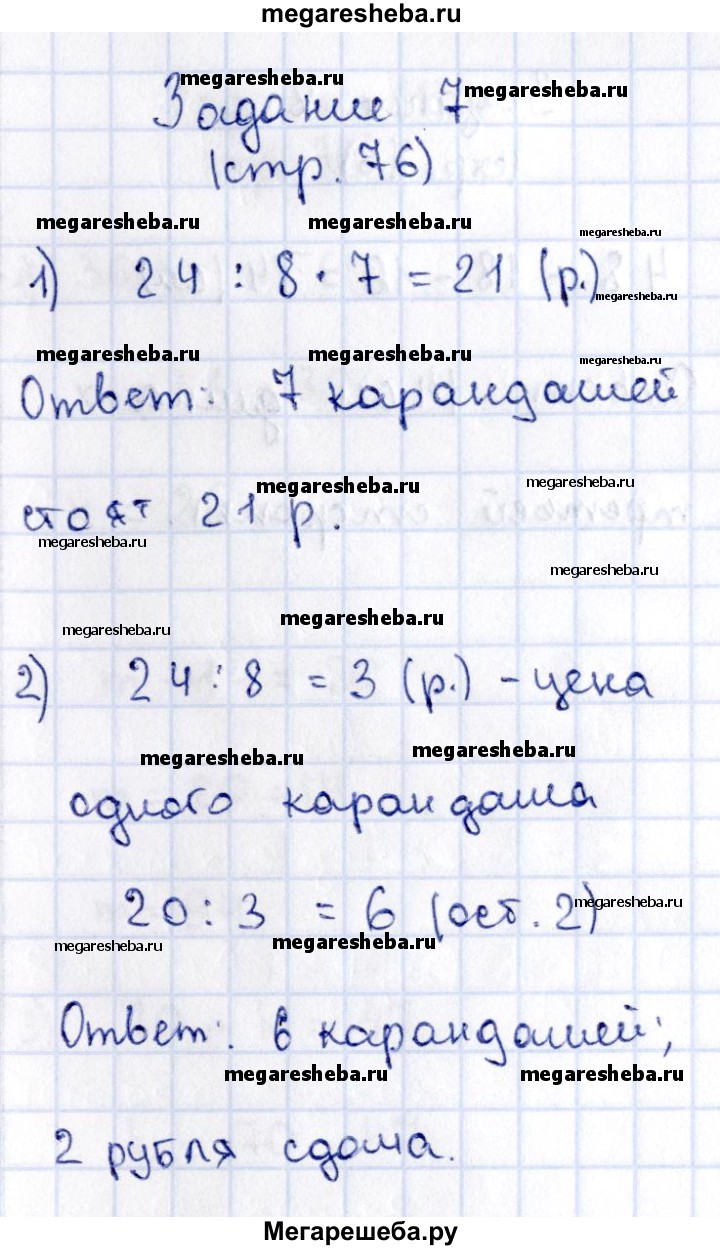 megaresheba.ru
megaresheba.ru
Задание 7
megaresheba.ru
(стр. 76)
megaresheba.ru megaresheba.ru megaresheba.ru
1) 24 : 8 · 7 = 21 (р.)
megaresheba.ru
megaresheba.ru megaresheba.ru megaresheba.ru
Ответ: 7 карандашей
megaresheba.ru megaresheba.ru
стоят 21 р.
megaresheba.ru
megaresheba.ru
megaresheba.ru
megaresheba.ru
2) 24 : 8 = 3 (р.) - цена
megaresheba.ru megaresheba.ru
одного карандаша
20 : 3 = 6 (ост. 2)
megaresheba.ru
megaresheba.ru megaresheba.ru
Ответ: 6 карандашей;
megaresheba.ru megaresheba.ru
2 рубля сдача.
Мегарешеба.ру